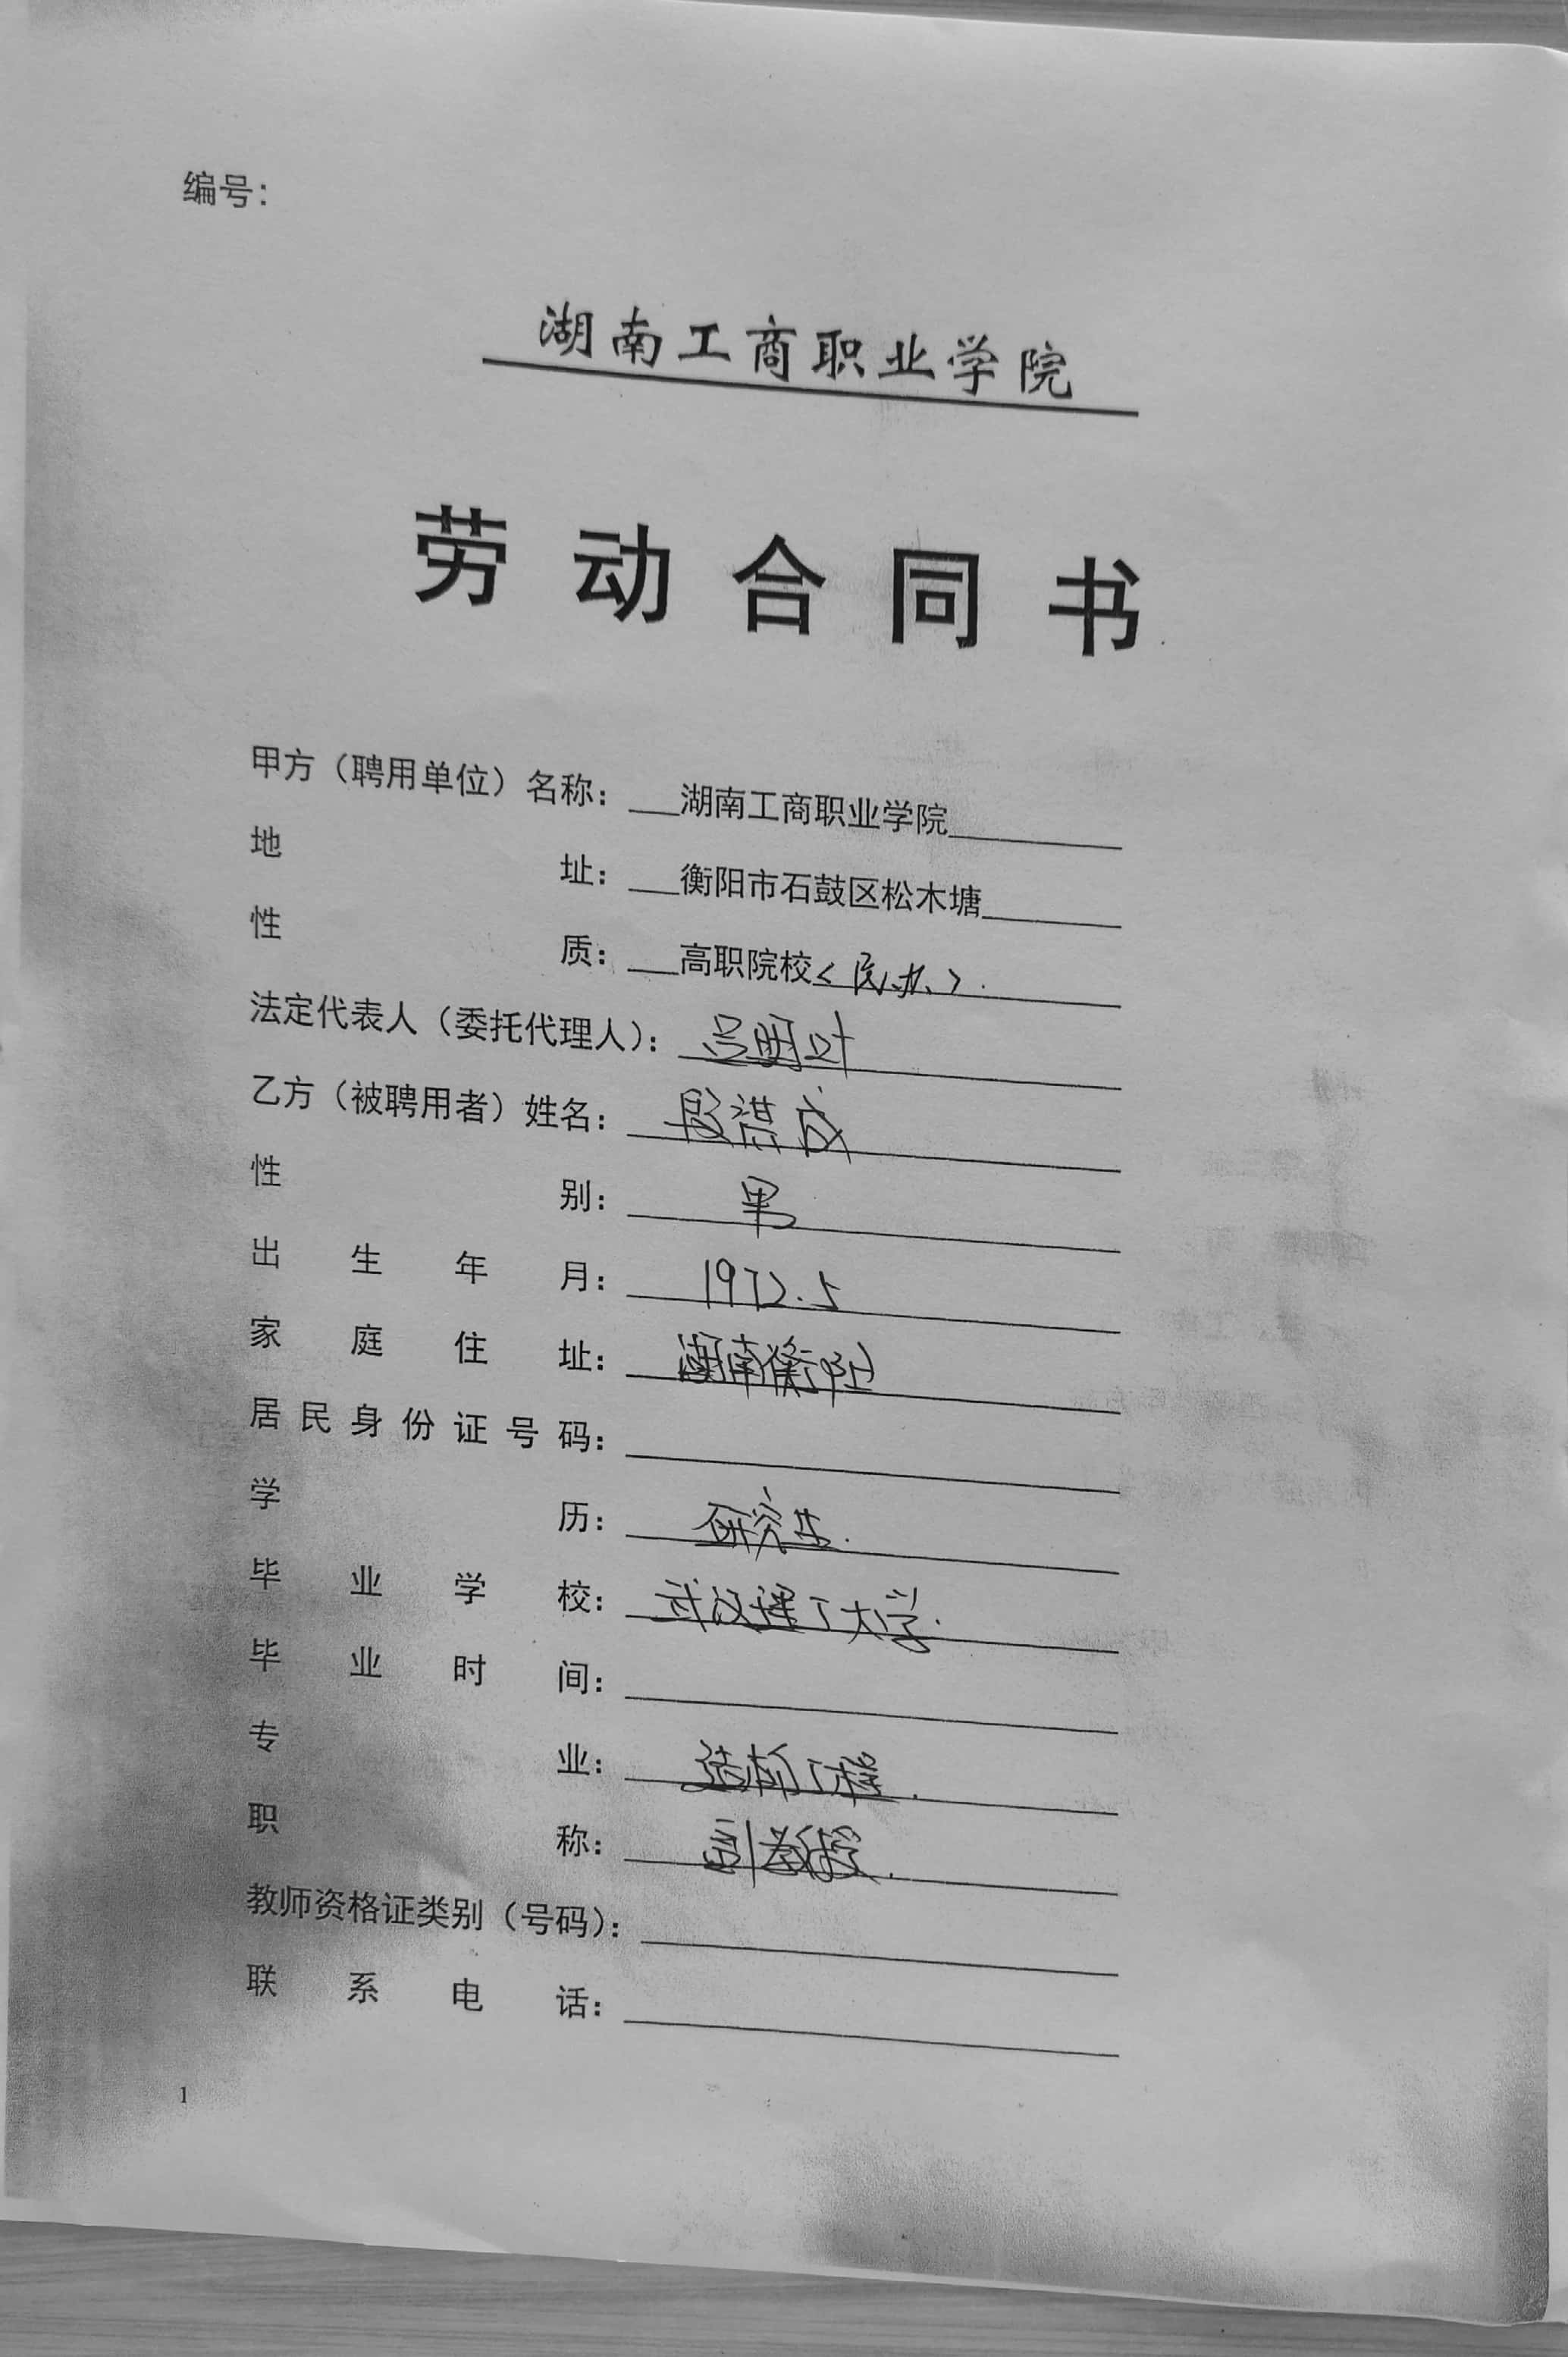 编号：
湖南工商职业学院
劳动合同书
甲方（聘用单位）名称：湖南工商职业学院
地址：衡阳市石鼓区松木塘
性质：高职院校＜民办＞.
法定代表人（委托代理人）：吕明叶
乙方（被聘用者）姓名：段洪成
性别：男
出生年月：1972.5
家庭住址：湖南衡阳
居民身份证号码：
学历：研究生.
毕业学校：武汉理工大学.
毕业时间：
专业：工程.
职称：副教授.
教师资格证类别（号码）：
联系电话：
1